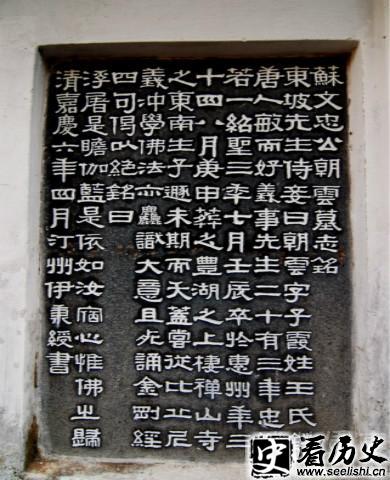 蘇文忠公朝雲墓志銘
東坡先生侍妾曰朝雲字子霞姓王氏
唐人敏而好義事先生二十有三年忠
若一紹聖三年七月壬辰卒於惠州年三
十四八月庚申葬之豐湖之上棲禪山寺
之東南生子遯未期而夭蓋嘗從比丘尼
義沖學佛法亦麤識大意且死誦金剛經
四句偈以絕銘曰
浮屠是瞻伽藍是依如汝宿心惟佛之歸
清嘉慶六年四月汀州伊秉綬書
史看历史
www.seelishi.cn